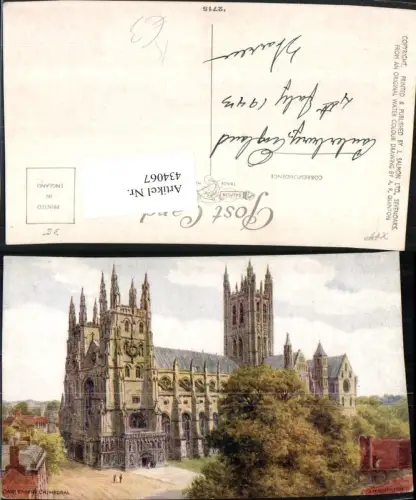 *2715
£3
COPYRIGHT. PRINTED & PUBLISHED BY J. SALMON LTD., SEVENOAKS,
FROM AN ORIGINAL WATER COLOUR DRAWING BY A. R. QUINTON
Canterbury, England
4th July 1943
CORRESPONDENCE
Post Card
SALMON
TRADE
PRINTED
IN
ENGLAND
Artikel Nr.
434067
CANTERBURY CATHEDRAL